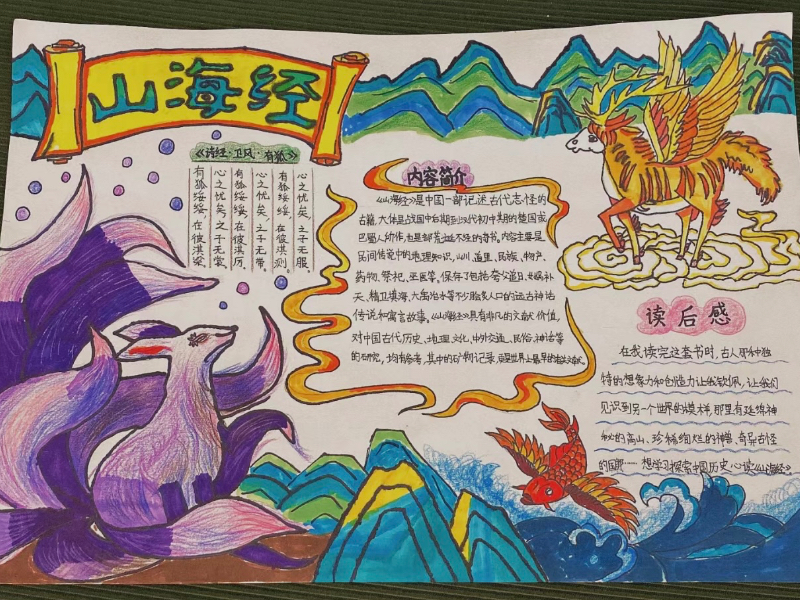 山海经
《诗经·卫风·有狐》
有狐绥绥,在彼淇梁。
心之忧矣,之子无裳。
有狐绥绥,在彼淇厉。
心之忧矣,之子无带。
有狐绥绥,在彼淇测。
心之忧矣,之子无服。
内容简介
《山海经》是中国一部记述古代志怪的
古籍,大体是战国中后期到汉代初中期的楚国或
巴蜀人所作,也是部荒诞不经的奇书。内容主要是
民间传说中的地理知识,山川、道里、民族、物产、
药物、祭祀、巫医等,保存了包括夸父追日、女娲补
天、精卫填海、大禹治水等不少脍炙人口的远古神话
传说和寓言故事。《山海经》具有非凡的文献价值,
对中国古代历史、地理、文化、中外交通、民俗、神话等
的研究,均有参考,其中的矿物记录,更是世界上最早的有关文献。
读后感
在我读完这套书时,古人那种独
特的想象力和创造力让我钦佩,让我们
见识到另一个世界的模样,那里有延绵神
秘的高山、珍稀绚烂的神兽、奇异古怪
的国那……想学习探索中国历史必读《山海经》